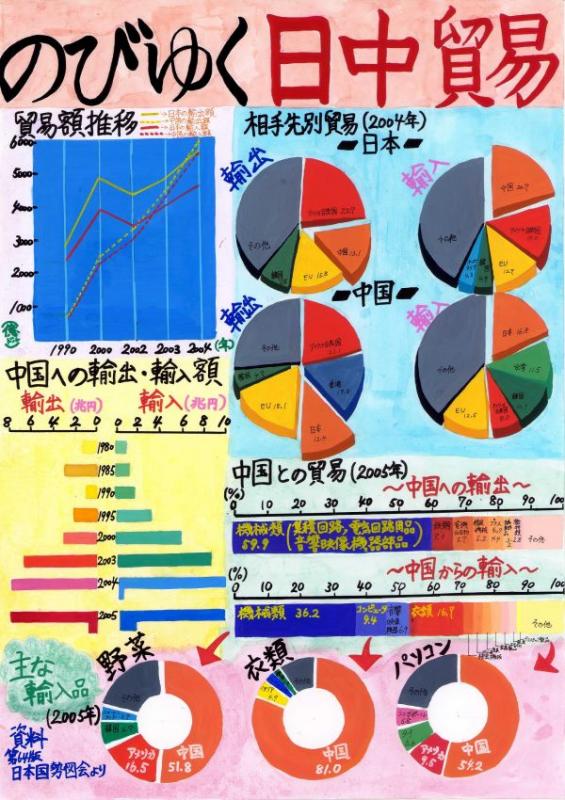 のびゆく日中貿易
貿易額推移
日本の輸出額
6000
5000
4000
3000
2000
1000
1990 2000 2002 2003 2004(年)
相手先別貿易(2004年)
日本
輸出
その他
中国 13.1
EU 15.8
韓国
輸入
中国 20.7
EU 12.7
その他
中国
輸出
その他
香港
日本
EU 18.1
韓国
輸入
日本 16.8
台湾 11.5
韓国
EU 12.5
その他
中国への輸出・輸入額
輸出(兆円) 輸入(兆円)
8 6 4 2 0 0 2 4 6 8 10
1980
1985
1990
1995
2000
2003
2004
2005
中国との貿易(2005年)
〜中国への輸出〜
(%) 0 10 20 30 40 50 60 70 80 90 100
機械類(集積回路,電気回路用品
59.9 音響映像機器部品)
その他
〜中国からの輸入〜
(%) 0 10 20 30 40 50 60 70 80 90 100
機械類 36.2
コンピュータ 9.4
衣類 16.9
その他
主な輸入品
(2005年)
野菜
中国 51.8
アメリカ 16.5
その他
衣類
中国 81.0
その他
パソコン
中国 54.2
アメリカ 9.5
その他
資料
第64版
日本国勢図会より